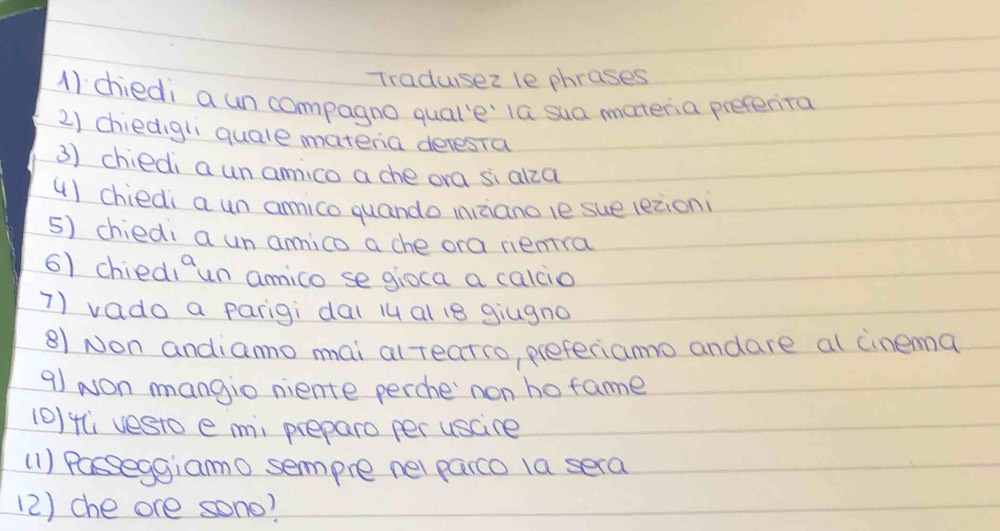 Traduisez le phrases
1) chiedi a un compagno qual'e' la sua materia preferita
2) chiedigli quale materia detesta
3) chiedi a un amico a che ora si alza
4) chiedi a un amico quando iniziano le sue lezioni
5) chiedi a un amico a che ora rientra
6) chiedi a un amico se gioca a calcio
7) vado a parigi dal 14 al 18 giugno
8) Non andiamo mai al teatro, preferiamo andare al cinema
9) Non mangio niente perche' non ho fame
10) Mi vesto e mi preparo per uscire
11) Passeggiamo sempre nel parco la sera
12) che ore sono?